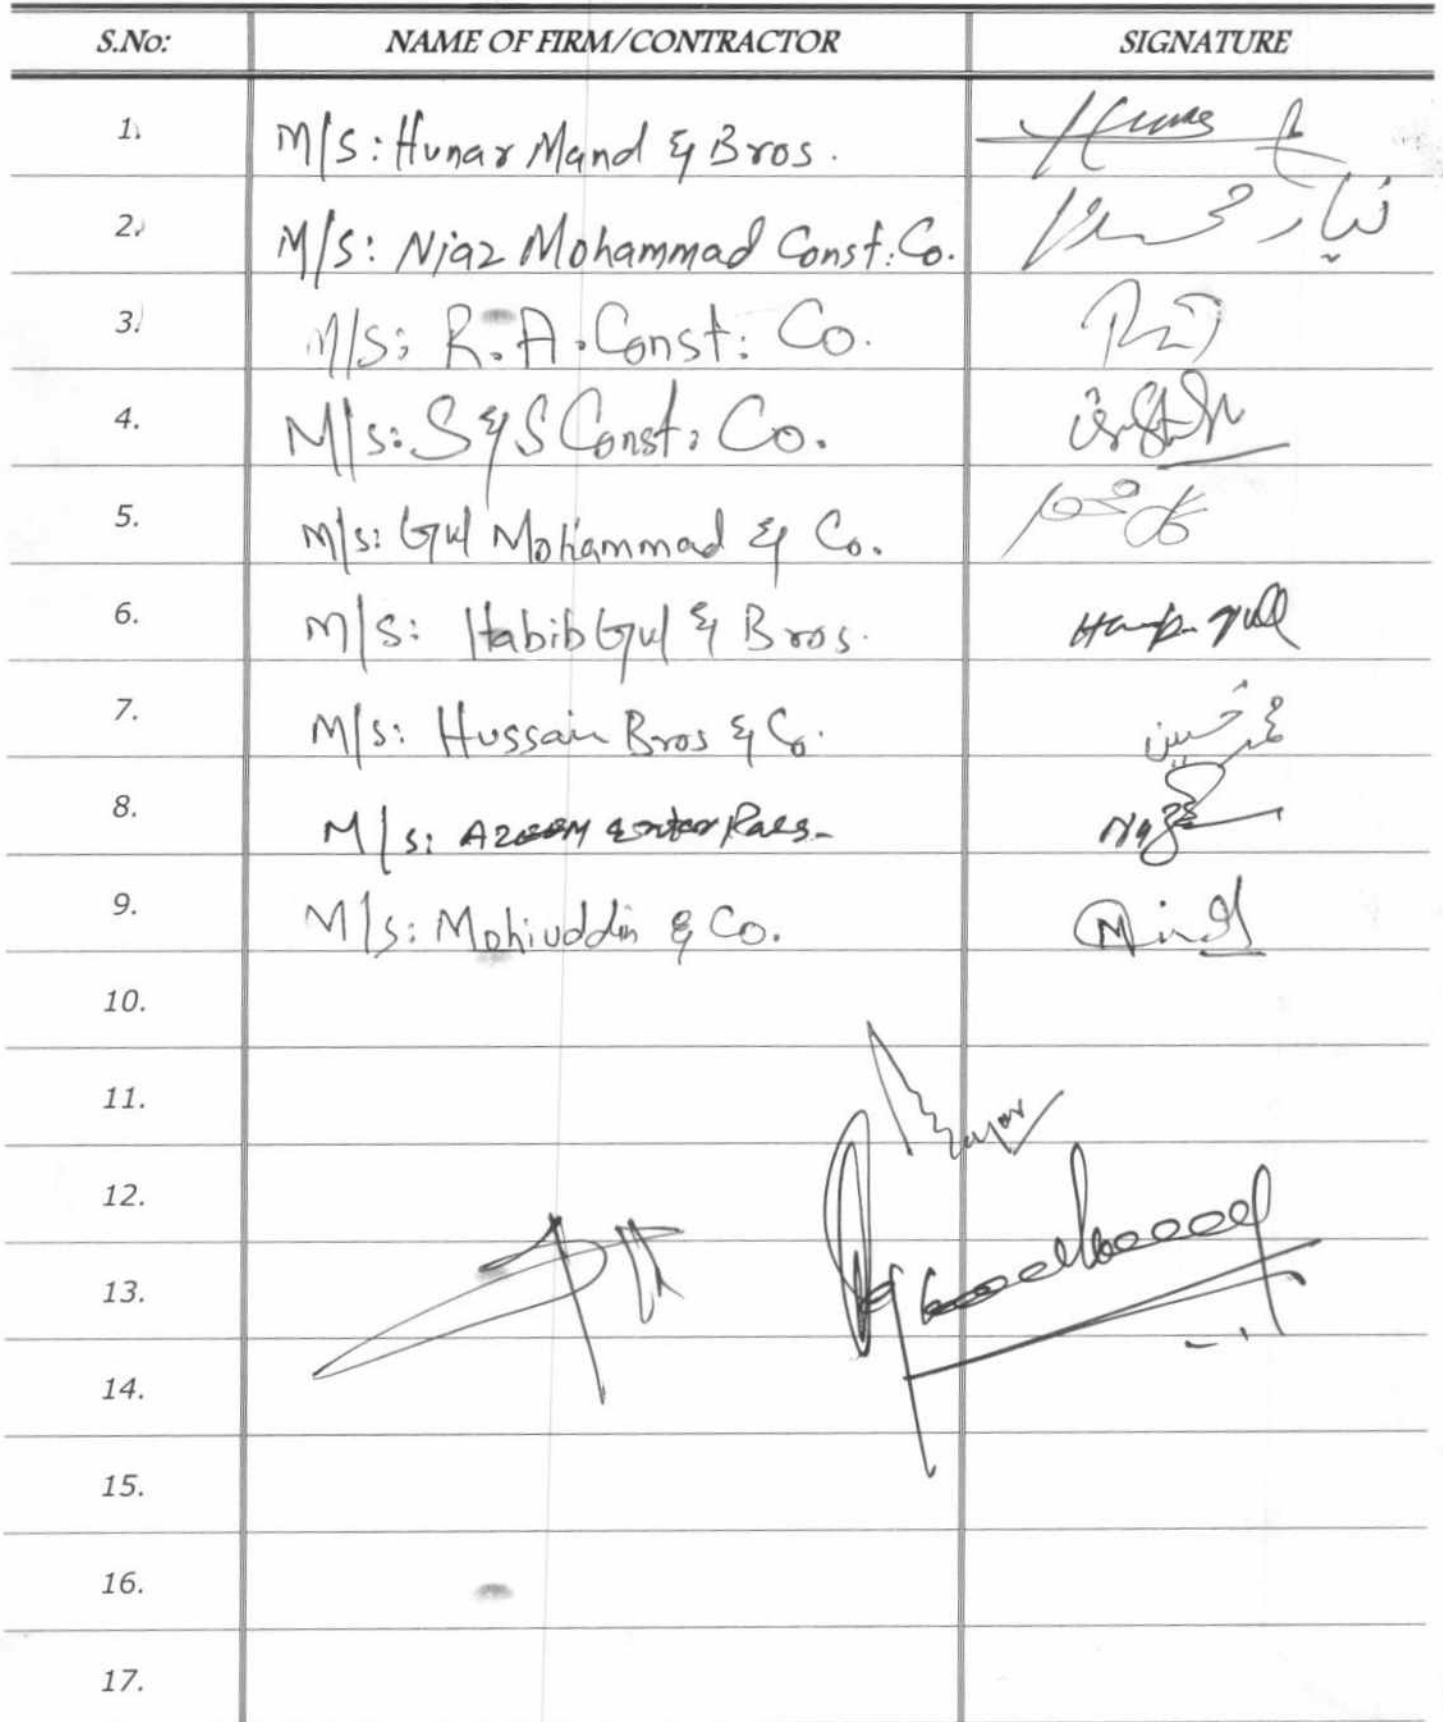 S.No: NAME OF FIRM/CONTRACTOR SIGNATURE
1. M/S: Hunar Mand & Bros.
2. M/S: Niaz Mohammad Const: Co. نیاز محمد
3. M/S: R.A. Const: Co.
4. M/S: S & S Const: Co.
5. M/S: Gul Mohammad & Co. گل محمد
6. M/S: Habib Gul & Bros. Habib Gull
7. M/S: Hussain Bros & Co. محمد حسین
8. M/S: AZEEM EnterPaes-
9. M/S: Mohiuddin & Co.
10.
11.
12.
13.
14.
15.
16.
17.